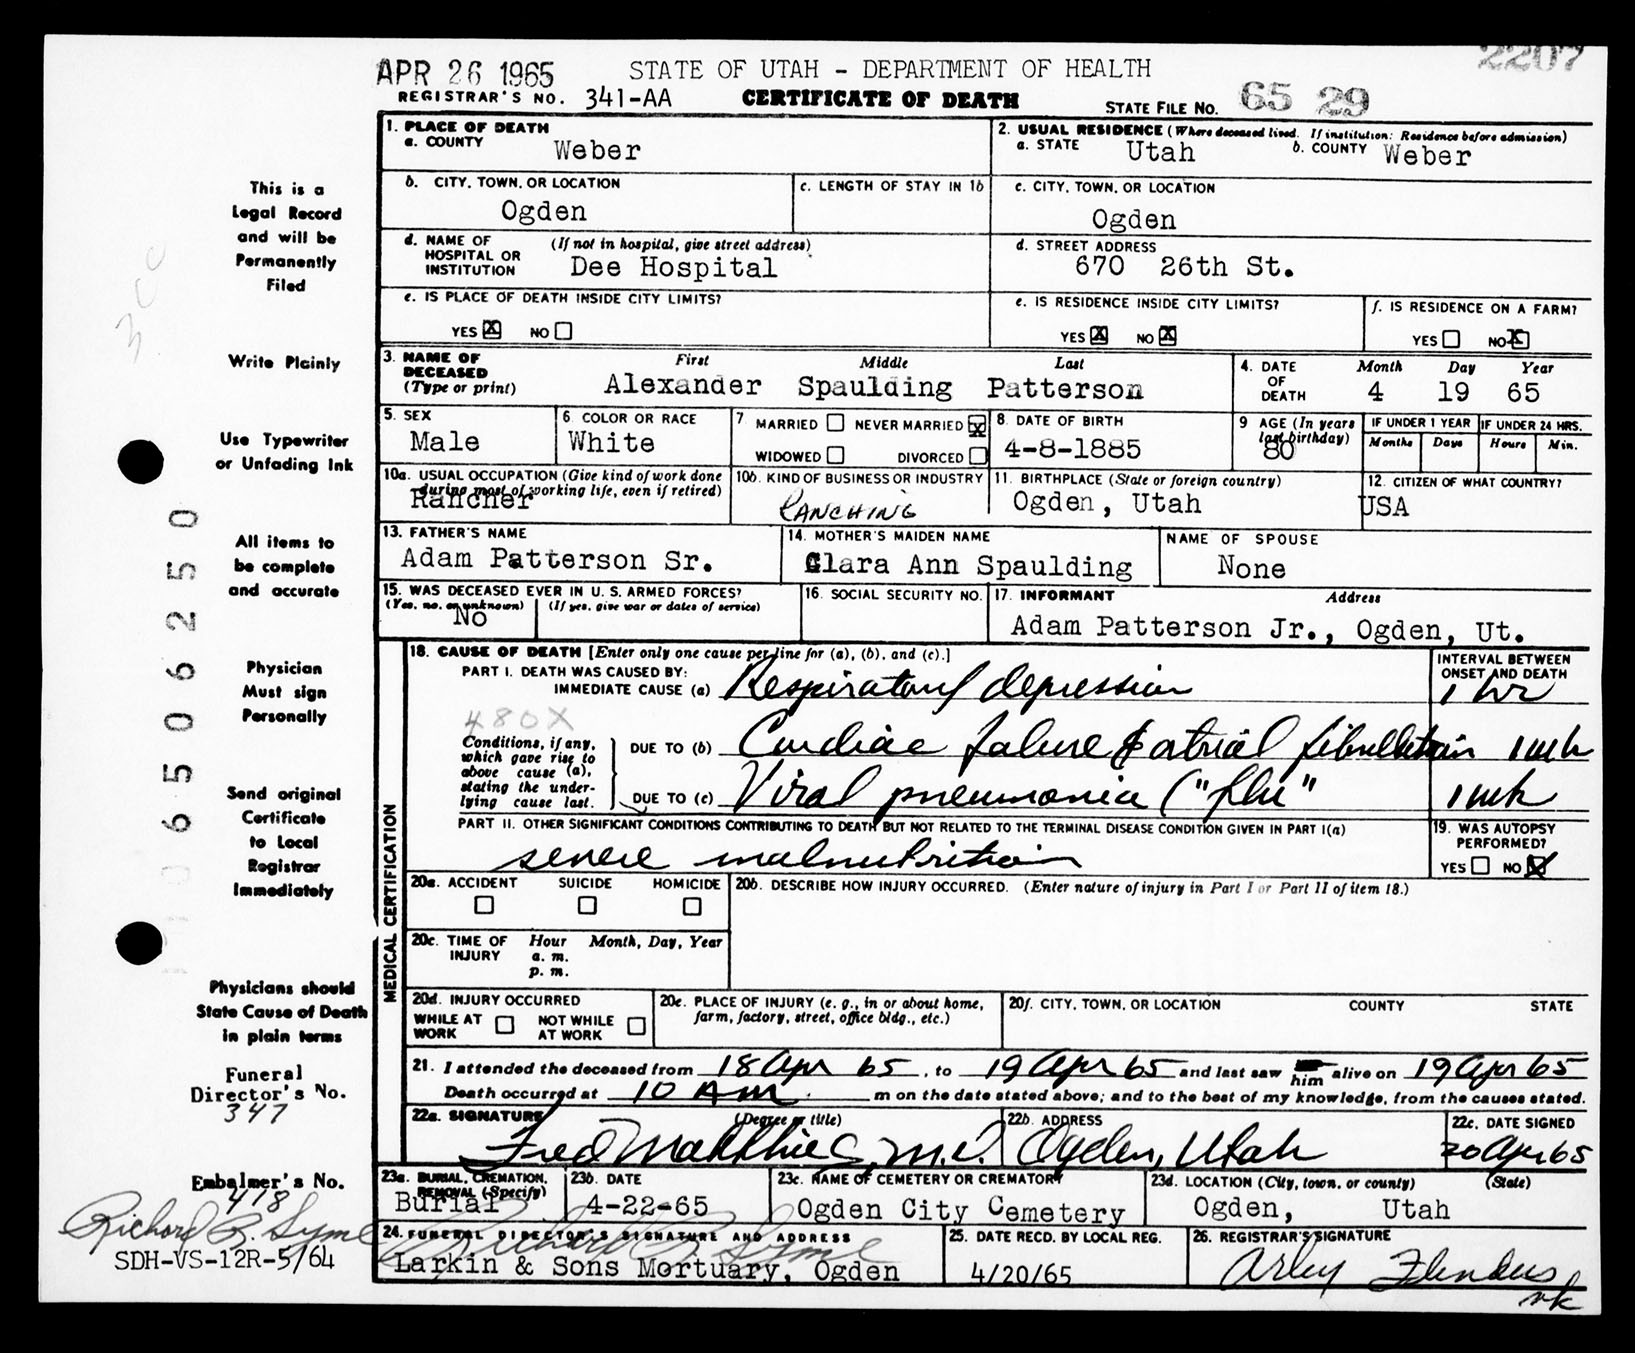 2207
APR 26 1965 STATE OF UTAH - DEPARTMENT OF HEALTH
REGISTRAR'S NO. 341-AA CERTIFICATE OF DEATH STATE FILE NO. 65 29
1. PLACE OF DEATH
a. COUNTY Weber
2. USUAL RESIDENCE (Where deceased lived. If institution: Residence before admission)
a. STATE Utah b. COUNTY Weber
b. CITY, TOWN, OR LOCATION
Ogden
c. LENGTH OF STAY IN 1b
c. CITY, TOWN, OR LOCATION
Ogden
d. NAME OF HOSPITAL OR INSTITUTION (If not in hospital, give street address)
Dee Hospital
d. STREET ADDRESS
670 26th St.
e. IS PLACE OF DEATH INSIDE CITY LIMITS?
YES X NO
e. IS RESIDENCE INSIDE CITY LIMITS?
YES X NO X
f. IS RESIDENCE ON A FARM?
YES NO X
3. NAME OF DECEASED (Type or print)
First Middle Last
Alexander Spaulding Patterson
4. DATE OF DEATH
Month Day Year
4 19 65
5. SEX
Male
6. COLOR OR RACE
White
7 MARRIED NEVER MARRIED X
WIDOWED DIVORCED
8. DATE OF BIRTH
4-8-1885
9. AGE (In years last birthday)
80
IF UNDER 1 YEAR
Months Days
IF UNDER 24 HRS.
Hours Min.
10a. USUAL OCCUPATION (Give kind of work done during most of working life, even if retired)
Rancher
10b. KIND OF BUSINESS OR INDUSTRY
RANCHING
11. BIRTHPLACE (State or foreign country)
Ogden, Utah
12. CITIZEN OF WHAT COUNTRY?
USA
13. FATHER'S NAME
Adam Patterson Sr.
14. MOTHER'S MAIDEN NAME
Clara Ann Spaulding
NAME OF SPOUSE
None
15. WAS DECEASED EVER IN U. S. ARMED FORCES?
(Yes, no, or unknown) (If yes, give war or dates of service)
No
16. SOCIAL SECURITY NO.
17. INFORMANT Address
Adam Patterson Jr., Ogden, Ut.
MEDICAL CERTIFICATION
18. CAUSE OF DEATH [Enter only one cause per line for (a), (b), and (c).]
INTERVAL BETWEEN ONSET AND DEATH
PART I. DEATH WAS CAUSED BY:
IMMEDIATE CAUSE (a) Respiratory depression 1 hr
480X
Conditions, if any, which gave rise to above cause (a), stating the underlying cause last.
DUE TO (b) Cardiac failure & atrial fibrillation 1 wk
DUE TO (c) Viral pneumonia ("flu" 1 wk
PART II. OTHER SIGNIFICANT CONDITIONS CONTRIBUTING TO DEATH BUT NOT RELATED TO THE TERMINAL DISEASE CONDITION GIVEN IN PART I(a)
severe malnutrition
19. WAS AUTOPSY PERFORMED?
YES NO X
20a. ACCIDENT SUICIDE HOMICIDE
20b. DESCRIBE HOW INJURY OCCURRED. (Enter nature of injury in Part I or Part II of item 18.)
20c. TIME OF INJURY Hour Month, Day, Year
a. m.
p. m.
20d. INJURY OCCURRED
WHILE AT WORK NOT WHILE AT WORK
20e. PLACE OF INJURY (e. g., in or about home, farm, factory, street, office bldg., etc.)
20f. CITY, TOWN, OR LOCATION COUNTY STATE
21. I attended the deceased from 18 Apr 65, to 19 Apr 65 and last saw him alive on 19 Apr 65
Death occurred at 10 AM m on the date stated above; and to the best of my knowledge, from the causes stated.
22a. SIGNATURE (Degree or title)
Fred Matthies, M.D.
22b. ADDRESS
Ogden, Utah
22c. DATE SIGNED
20 Apr 65
23a. BURIAL, CREMATION, REMOVAL (Specify)
Burial
23b. DATE
4-22-65
23c. NAME OF CEMETERY OR CREMATORY
Ogden City Cemetery
23d. LOCATION (City, town, or county) (State)
Ogden, Utah
24. FUNERAL DIRECTOR'S SIGNATURE AND ADDRESS
Richard B. Syme
Larkin & Sons Mortuary, Ogden
25. DATE RECD. BY LOCAL REG.
4/20/65
26. REGISTRAR'S SIGNATURE
Arley Flinders
This is a
Legal Record
and will be
Permanently
Filed
Write Plainly
Use Typewriter
or Unfading Ink
All items to
be complete
and accurate
Physician
Must sign
Personally
Send original
Certificate
to Local
Registrar
Immediately
Physicians should
State Cause of Death
in plain terms
Funeral
Director's No.
347
Embalmer's No.
418
Richard B. Syme
SDH-VS-12R-5/64
0 6 5 0 6 2 5 0